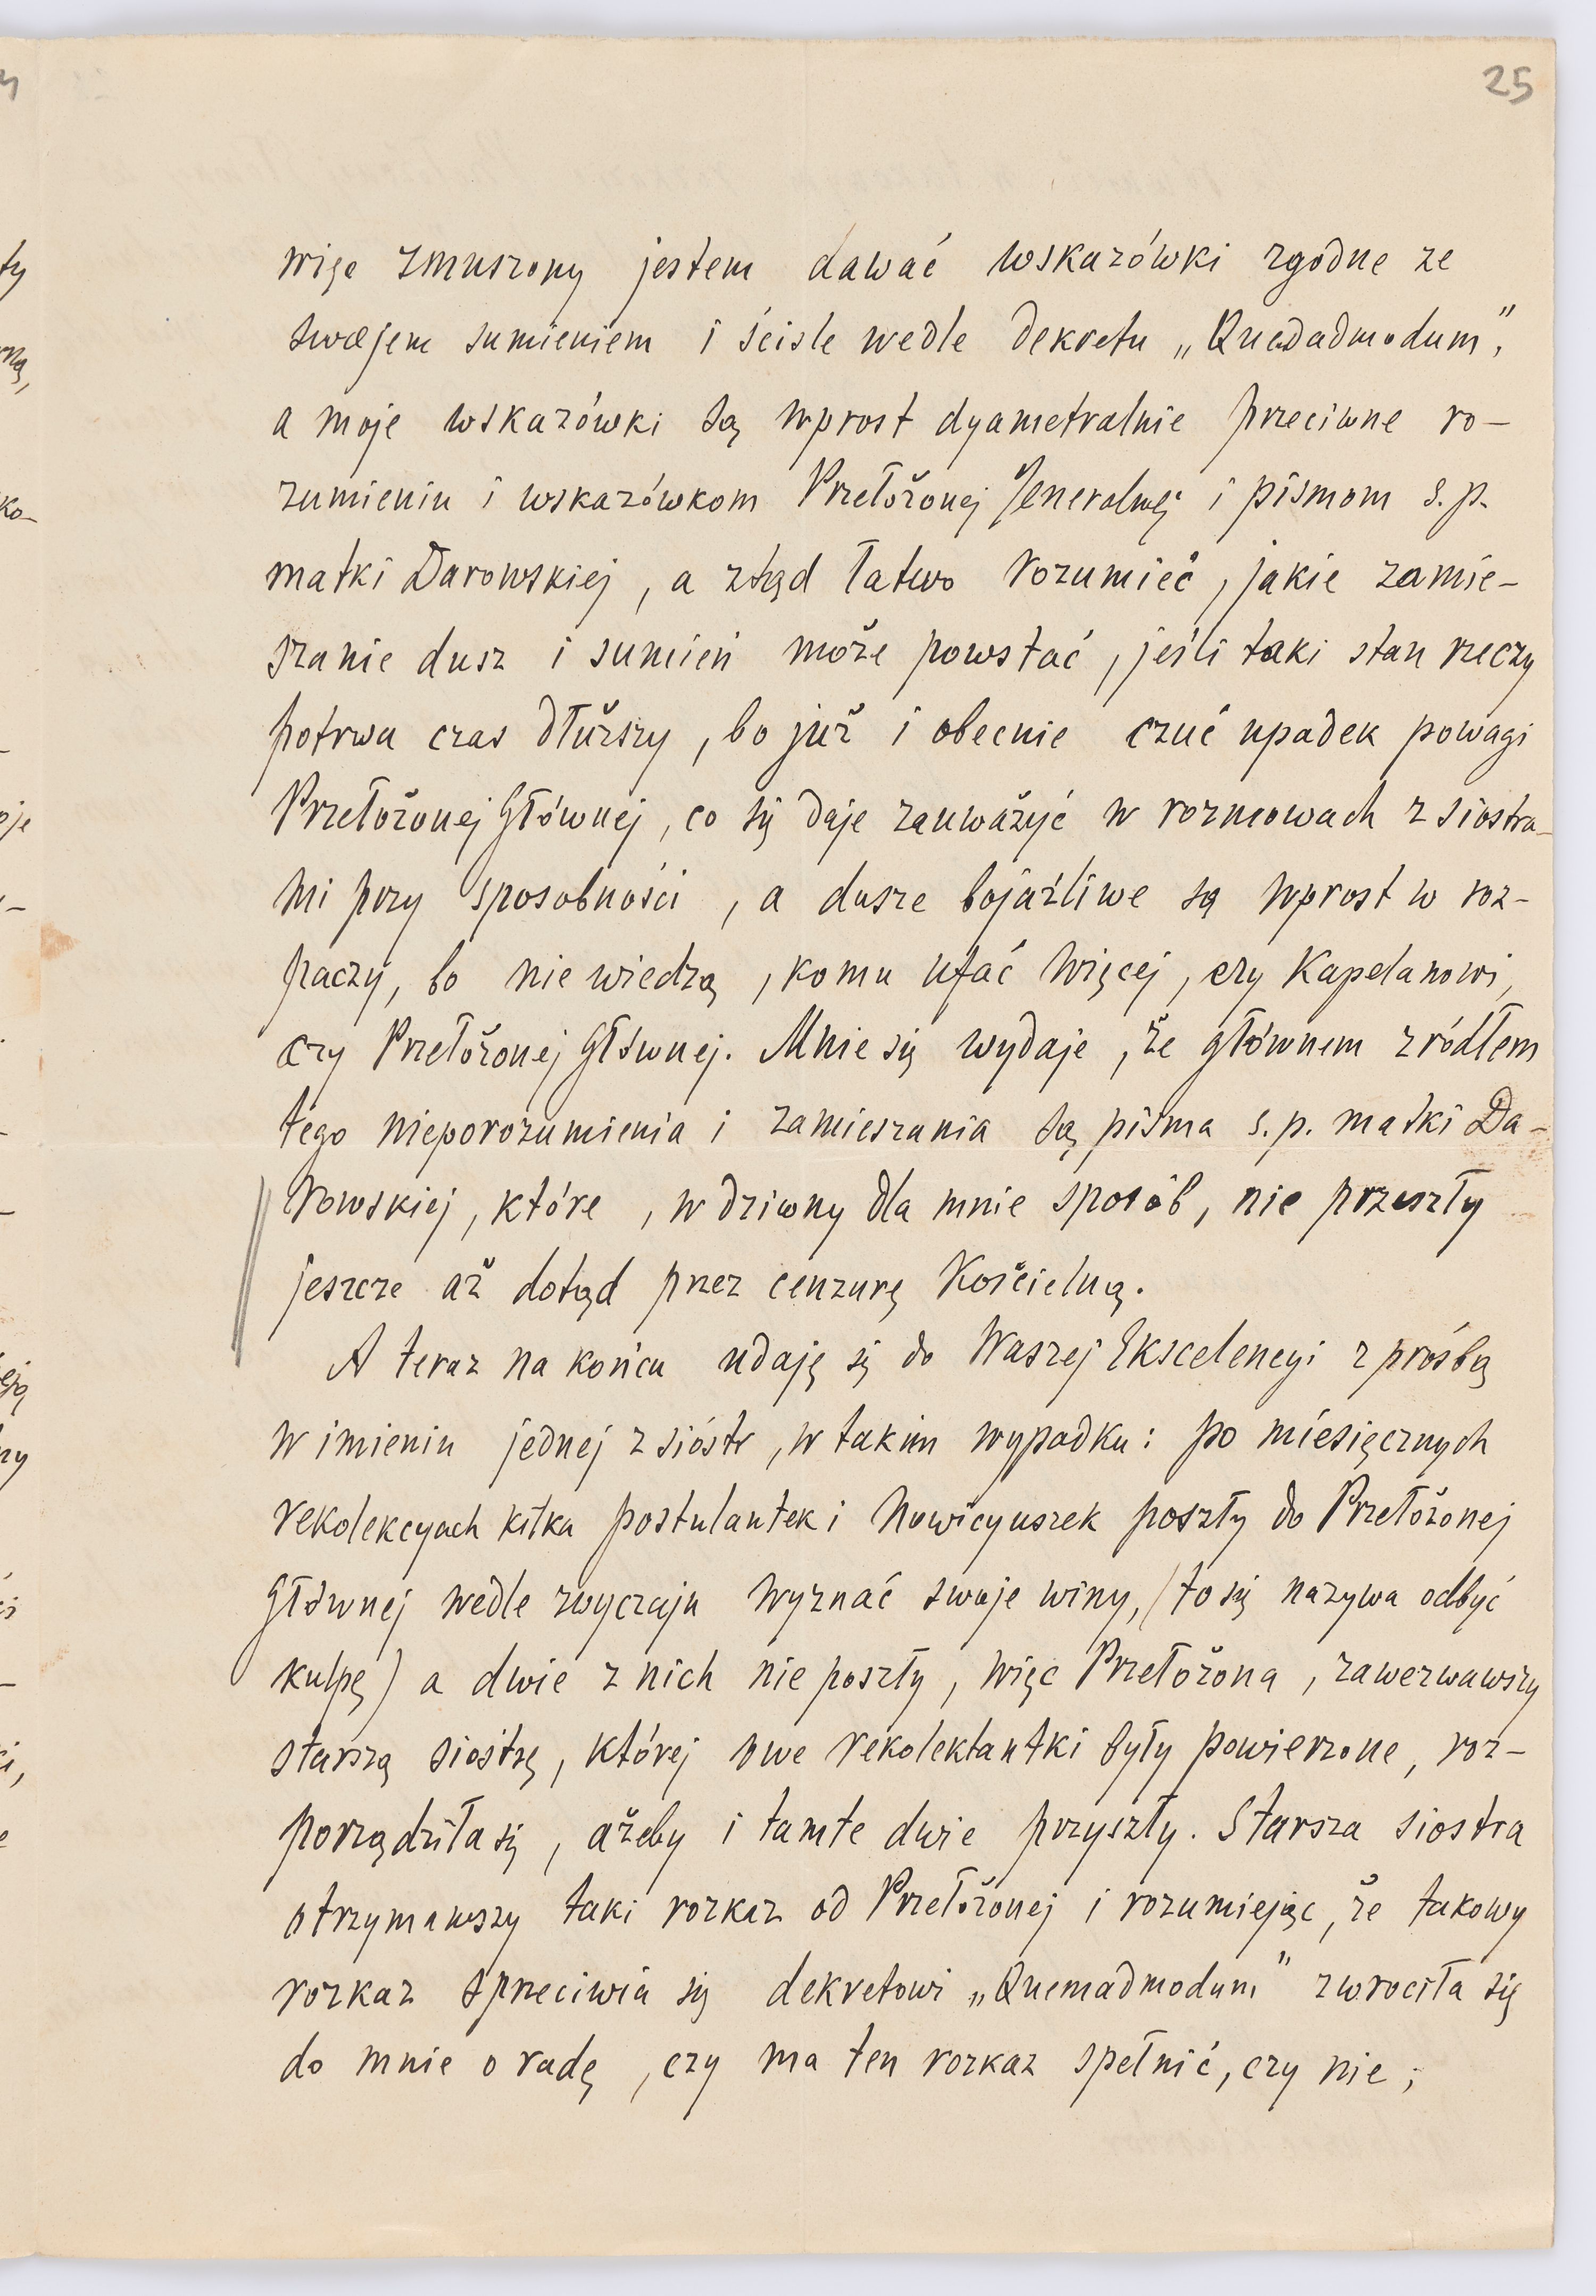 25
więc zmuszony jestem dawać wskazówki zgodne ze
swojem sumieniem i ściśle wedle dekretu „Quedadmodum”,
a moje wskazówki są wprost dyametralnie przeciwne ro-
zumieniu i wskazówkom Przełożonej Jeneralnej i pismom s. p.
matki Darowskiej, a ztąd łatwo rozumieć, jakie zamie-
szanie dusz i sumień może powstać, jeśli taki stan rzeczy
potrwa czas dłuższy, bo już i obecnie czuć upadek powagi
Przełożonej Głównej, co się daje zauważyć w rozmowach z siostra-
mi przy sposobności, a dusze bojaźliwe są wprost w roz-
paczy, bo nie wiedzą, komu ufać więcej, czy Kapelanowi,
czy Przełożonej Głównej. Mnie się wydaje, że głównem zródłem
tego nieporozumienia i zamieszania są pisma s. p. matki Da-
rowskiej, które, w dziwny dla mnie sposób, nie przeszły
jeszcze aż dotąd przez cenzurę Kościelną.
A teraz na końcu udaję się do Waszej Ekscelencyi z prośbą
w imieniu jednej z sióstr, w takim wypadku: po miesięcznych
rekolekcyach kilka postulantek i Nowicyuszek poszły do Przełożonej
Głównej wedle zwyczaju wyznać swoje winy, (to się nazywa odbyć
kulpę) a dwie z nich nie poszły, więc Przełożona, zawezwawszy
starszą siostrę, której owe rekolektantki były powierzone, roz-
porządziła się, ażeby i tamte dwie przyszły. Starsza siostra
otrzymawszy taki rozkaz od Przełożonej i rozumiejąc, że takowy
rozkaz sprzeciwia się dekretowi „Quemadmodum” zwrociła się
do mnie o radę, czy ma ten rozkaz spełnić, czy nie;